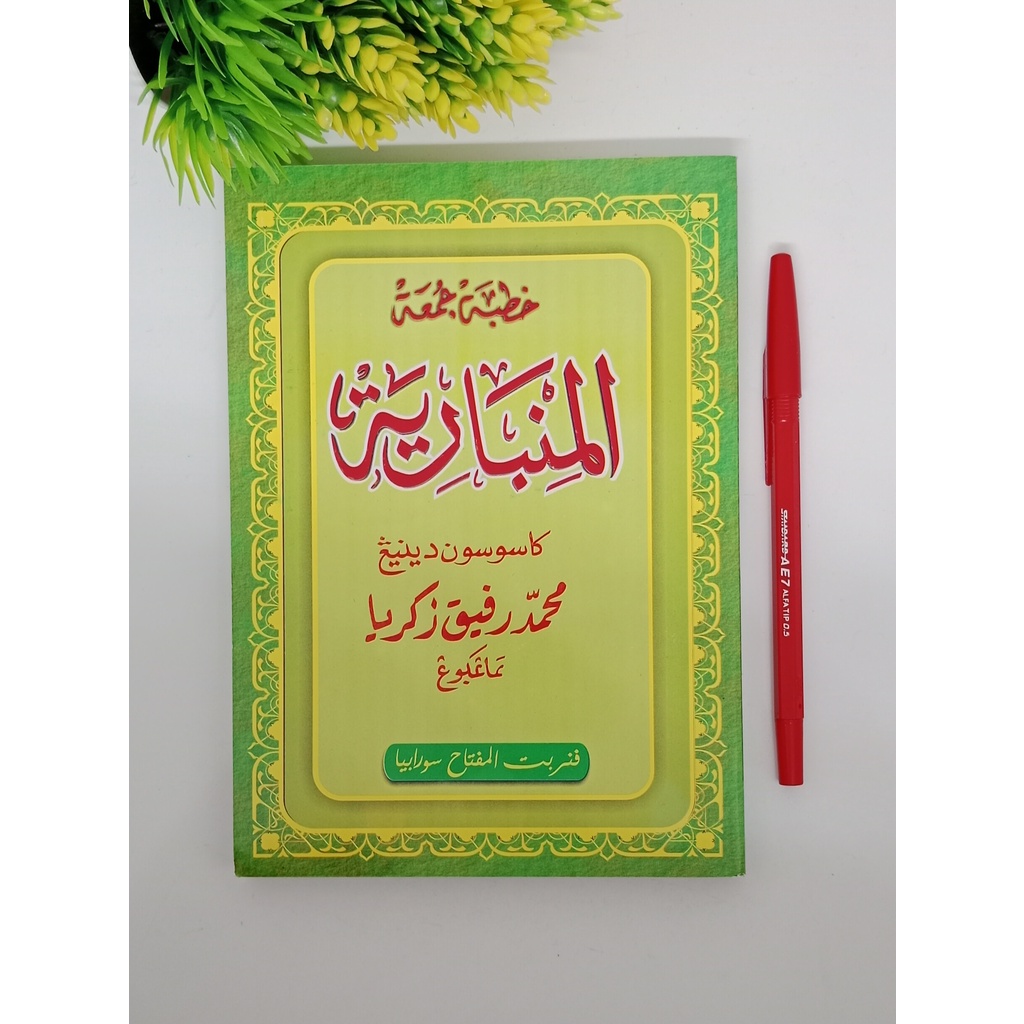 خطبة جمعة
المِنبَارِية
كاسوسون دينيڠ
محمّد رفيق زكريا
نماڠكوڠ
فنربت المفتاح سورابيا
STANDARD AE7 ALFA TIP 0.5